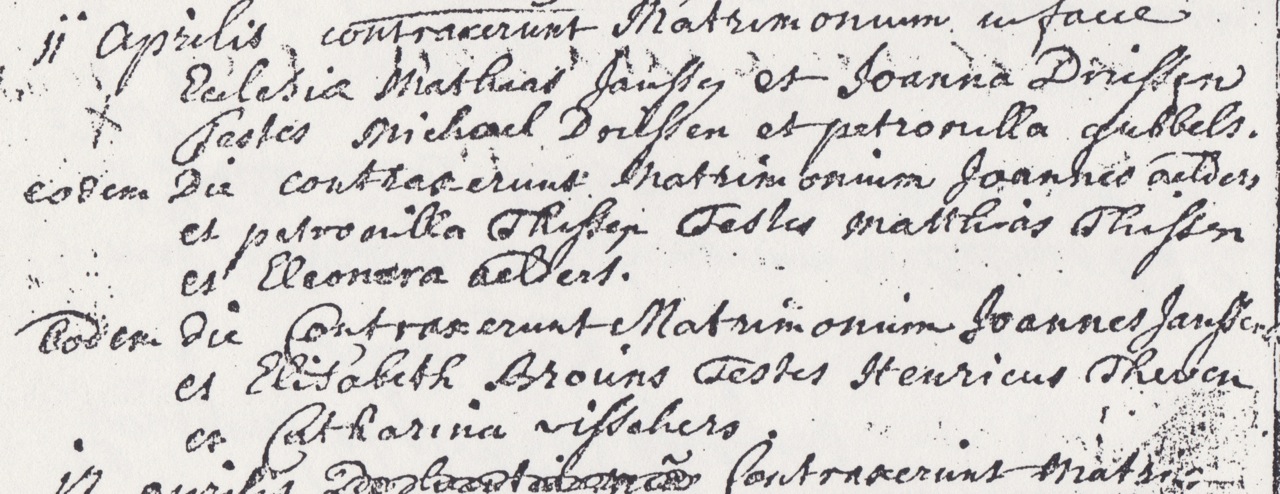 jj Aprilis contraxerunt Matrimonium in facie
Eclesia Mathias Janssen et Joanna Drissen
Testes Michael Drissen et petronilla gubbels.
eodem Die contraxerunt Matrimonium Joannes aelders
et petronilla Thissen Testes matthias Thissen
et Eleonora aelders.
Eodem die Contraxerunt Matrimonium Joannes Janssen
et Elisabeth Brouns Testes Henricus Theven
et Catharina visschers.
aprilis Contraxerunt Matri